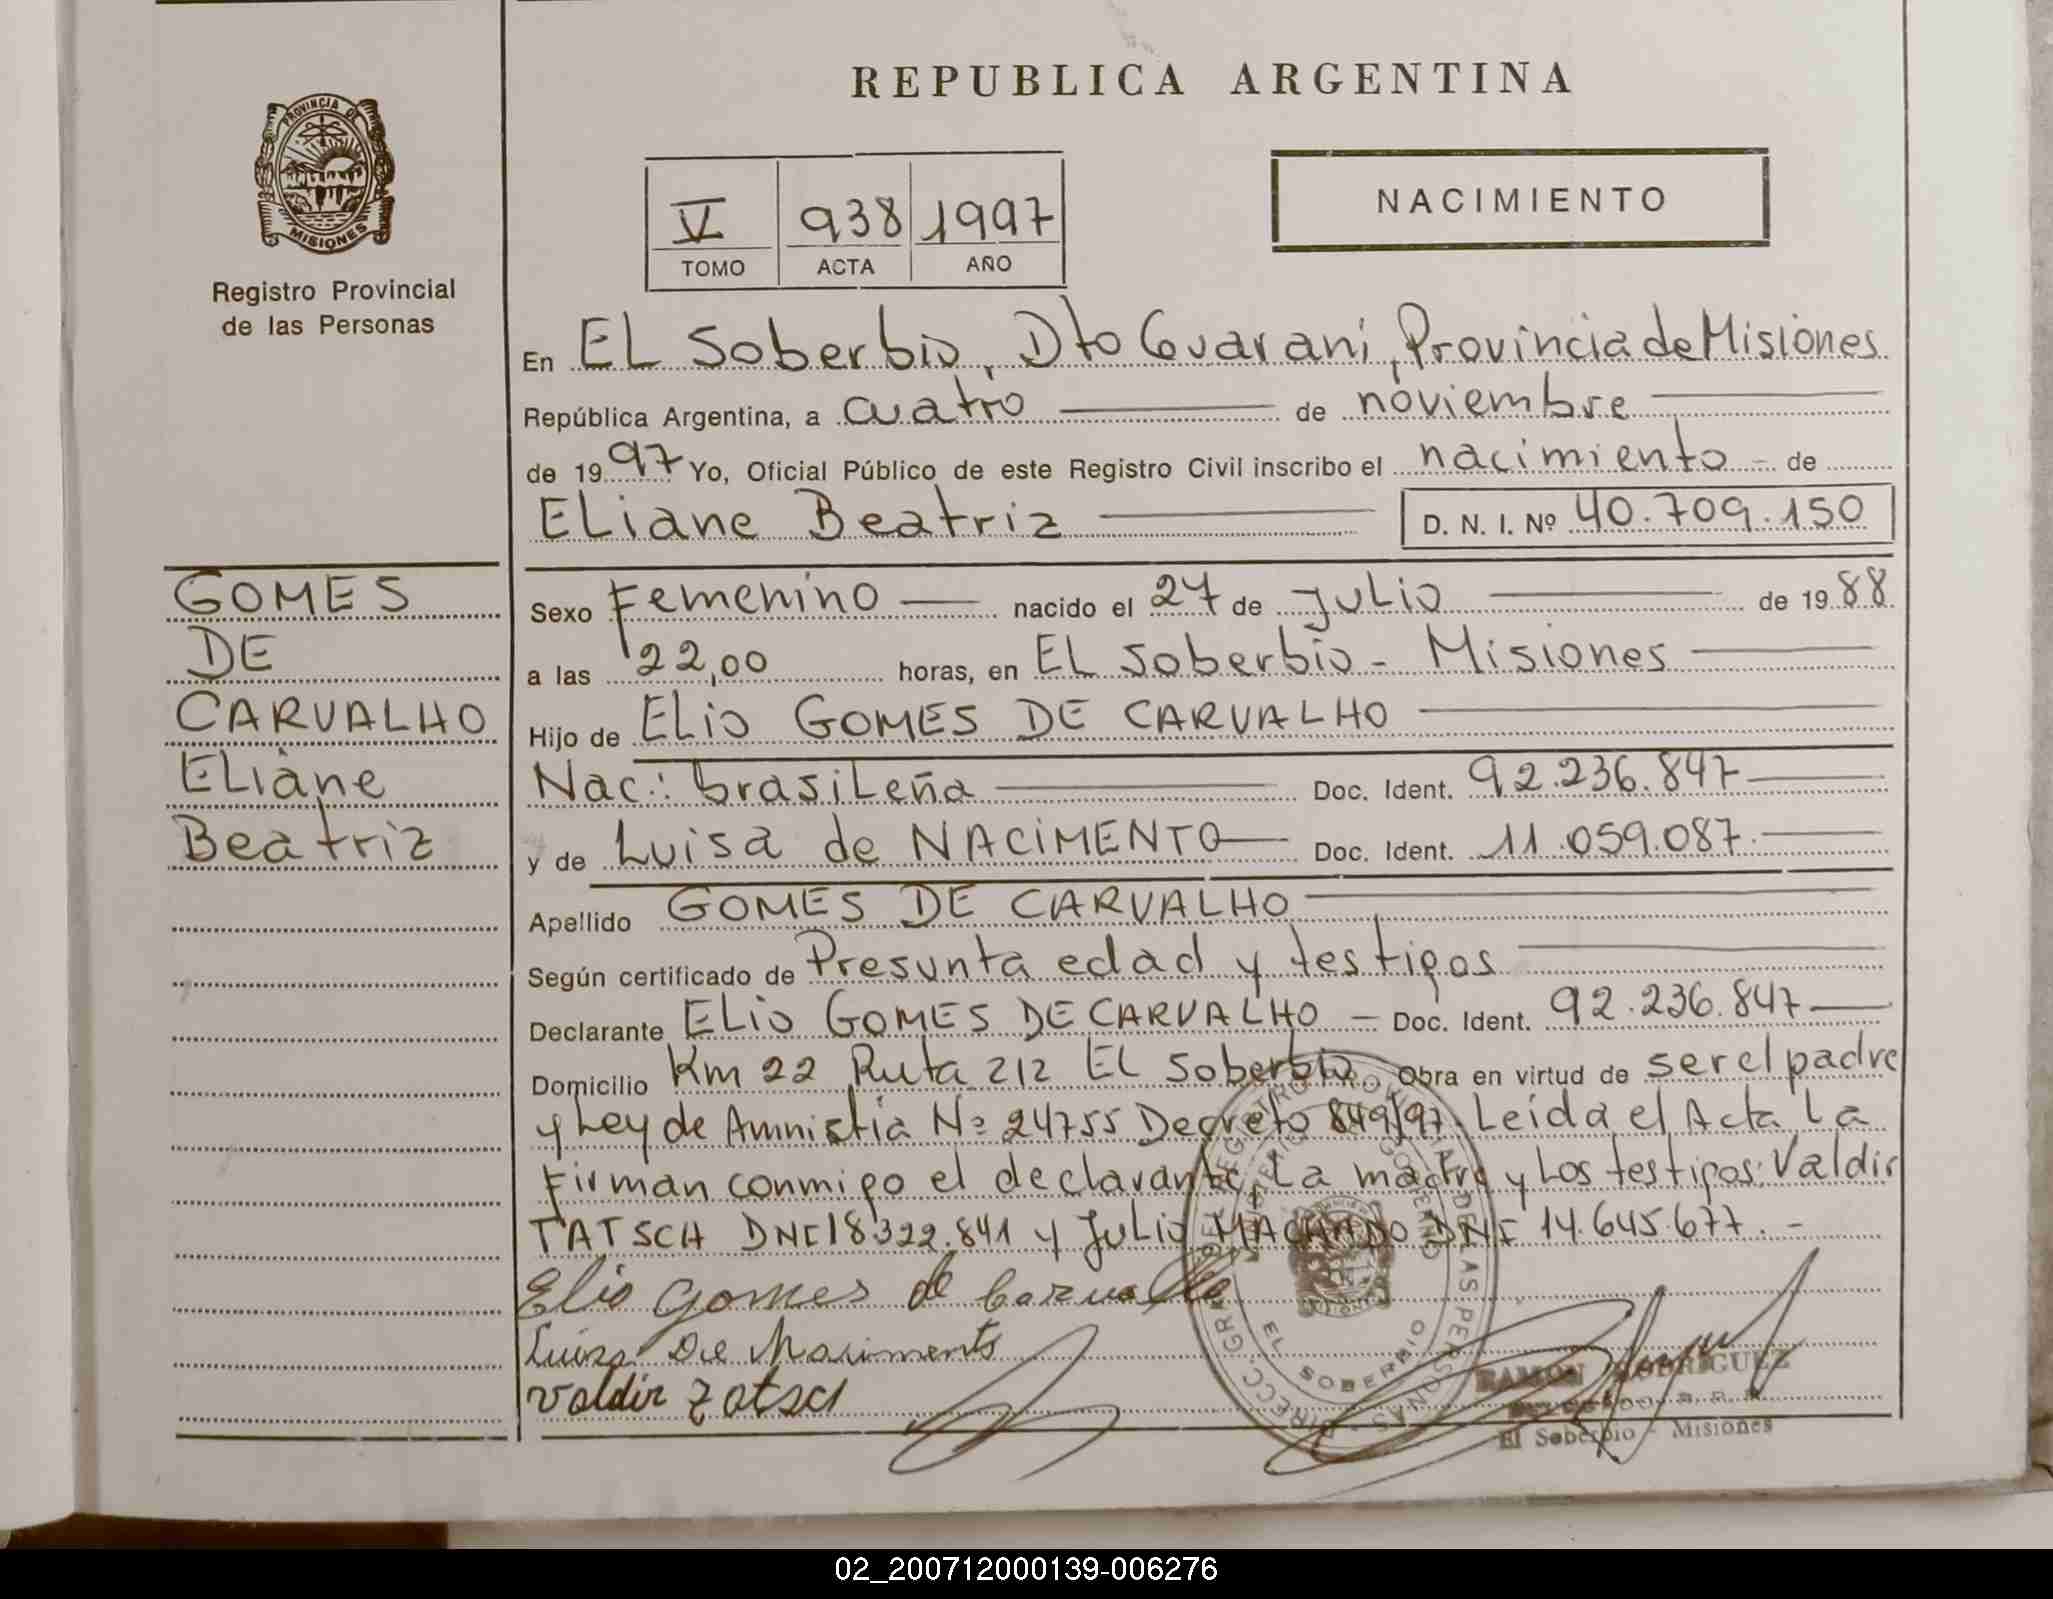 REPUBLICA ARGENTINA
PROVINCIA DE
MISIONES
Registro Provincial
de las Personas
V 938 1997
TOMO ACTA AÑO
NACIMIENTO
En EL Soberbio, Dto Guarani, Provincia de Misiones
República Argentina, a cuatro de noviembre
de 1997 Yo, Oficial Público de este Registro Civil inscribo el nacimiento - de
ELiane Beatriz D. N. I. Nº 40.709.150
GOMES
DE
CARVALHO
ELiane
Beatriz
Sexo Femenino nacido el 27 de JuLio de 1988
a las 22,00 horas, en EL Soberbio - Misiones
Hijo de ELio GOMES DE CARVALHO
Nac.: brasiLeña Doc. Ident. 92.236.847
y de Luisa de NACIMENTO Doc. Ident. 11.059.087
Apellido GOMES DE CARVALHO
Según certificado de Presunta edad y testigos
Declarante ELio GOMES DE CARVALHO - Doc. Ident. 92.236.847
Domicilio Km 22 Ruta 212 EL Soberbio Obra en virtud de ser el padre
y Ley de Amnistia Nº 24755 Decreto 849/97. Leida el Acta La
Firman conmigo el declarante, La madre y Los testigos: Valdir
TATSCH DNI 18.322.841 y JuLio MACHADO DNI 14.645.677. -
Elio gomes de Carvalho
Luiza De Nacimento
Valdir Tatsch
EL SOBERBIO
RAMON RODRIGUEZ
El Soberbio - Misiones
02_200712000139-006276